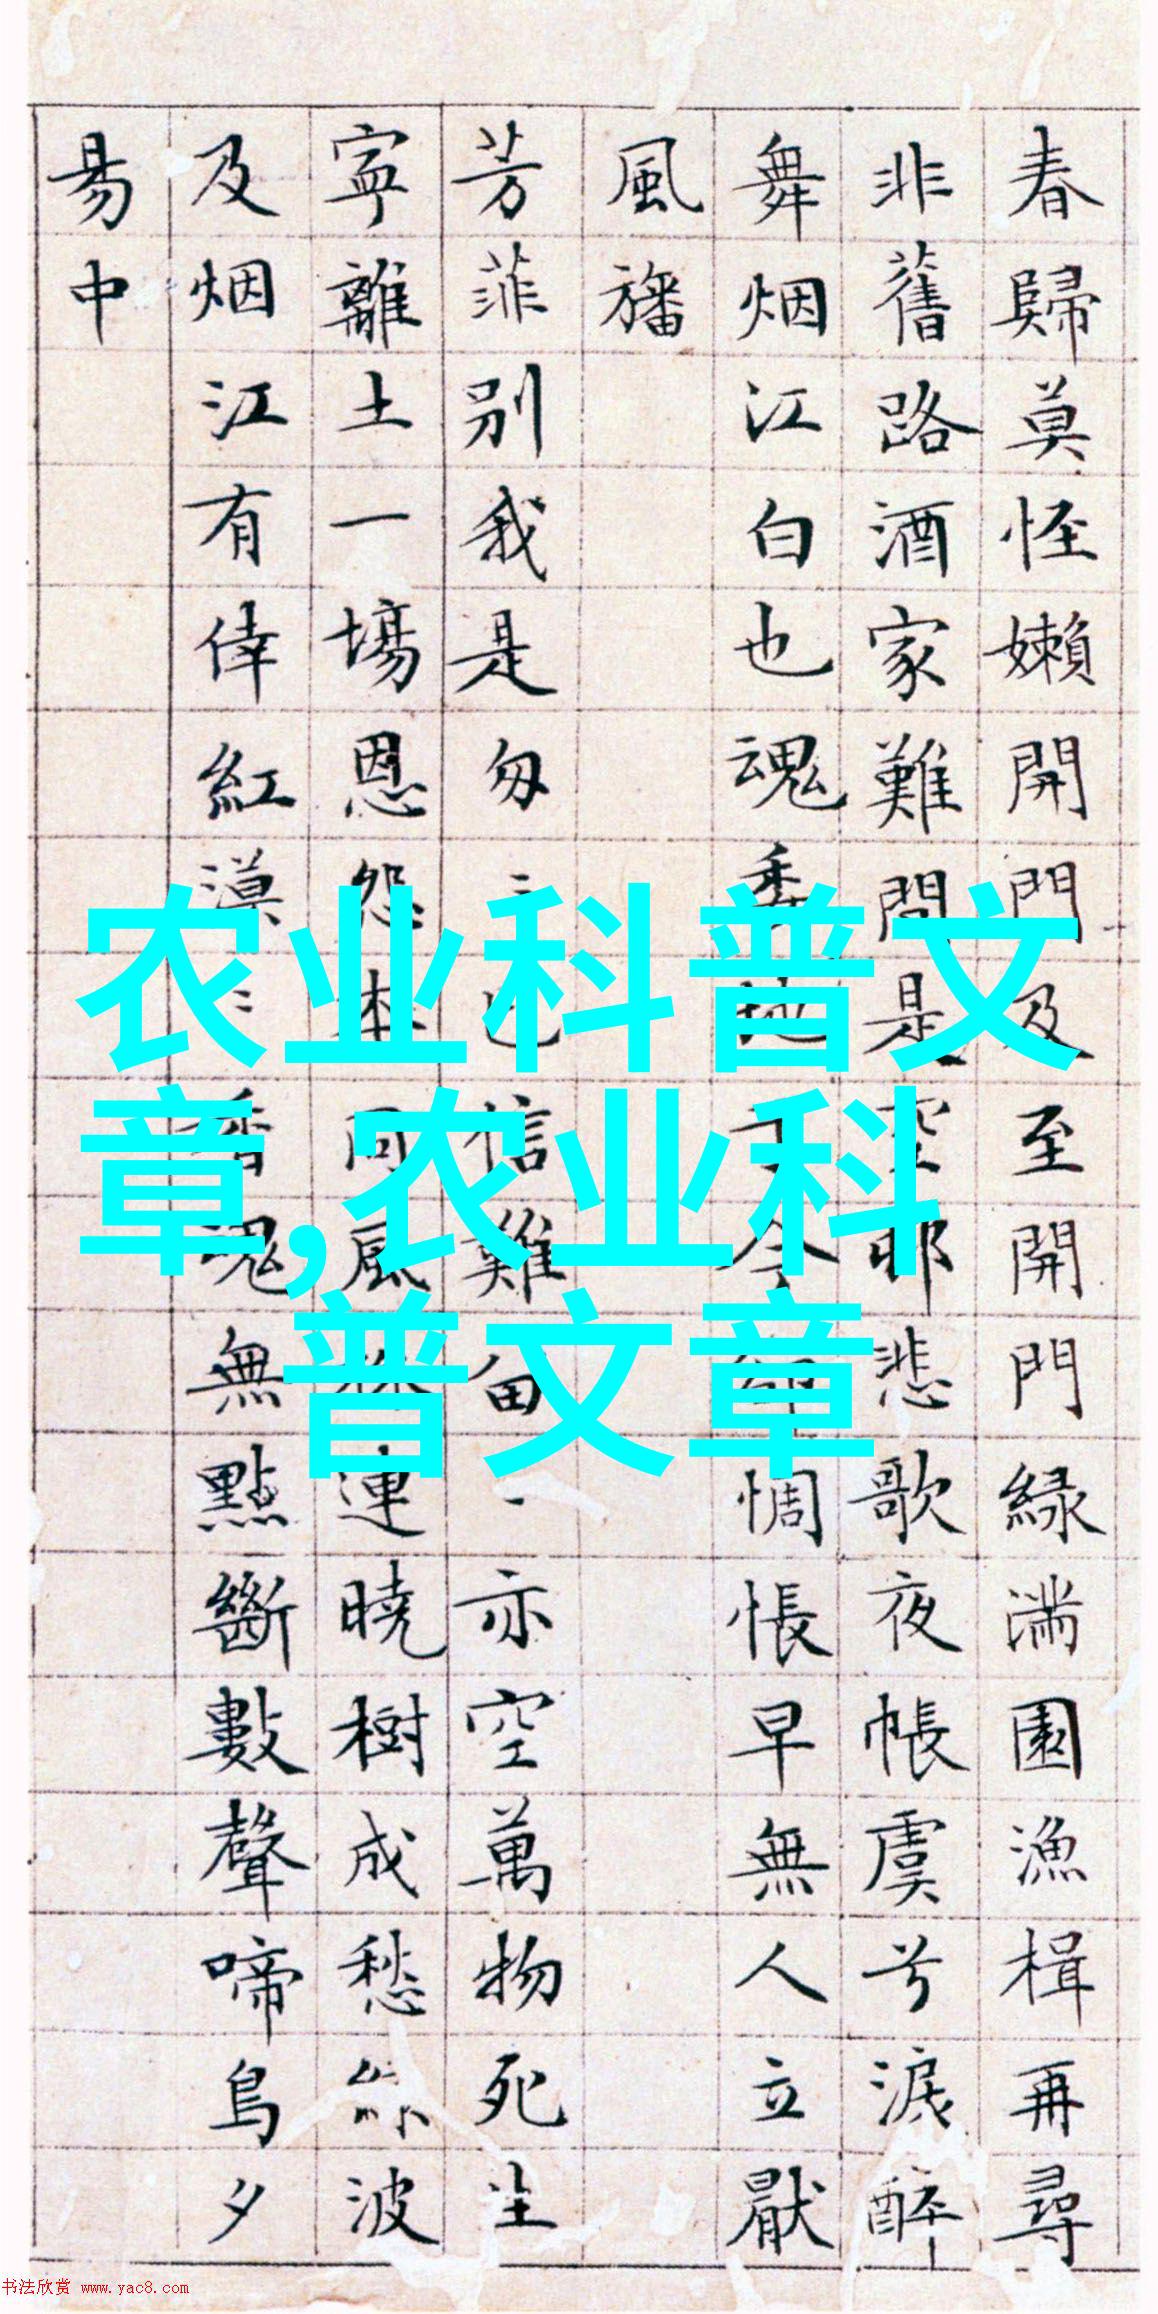 春歸莫怪嬾開門及至開門緑滿園漁楫再尋
非舊路酒家難問是空邨悲歌夜帳虞兮淚醉
舞烟江白也魂委地于今惆悵早無人立厭
風旛
芳菲別我是匆〻也信難留〻亦空萬物死生
寧離土一塲恩怨本同風株連曉樹成愁波
及烟江有倖紅漠〻香魂無點斷數聲啼鳥夕
易中
农业科普文
章,农业科
普文章
书法欣赏 www.yac8.com